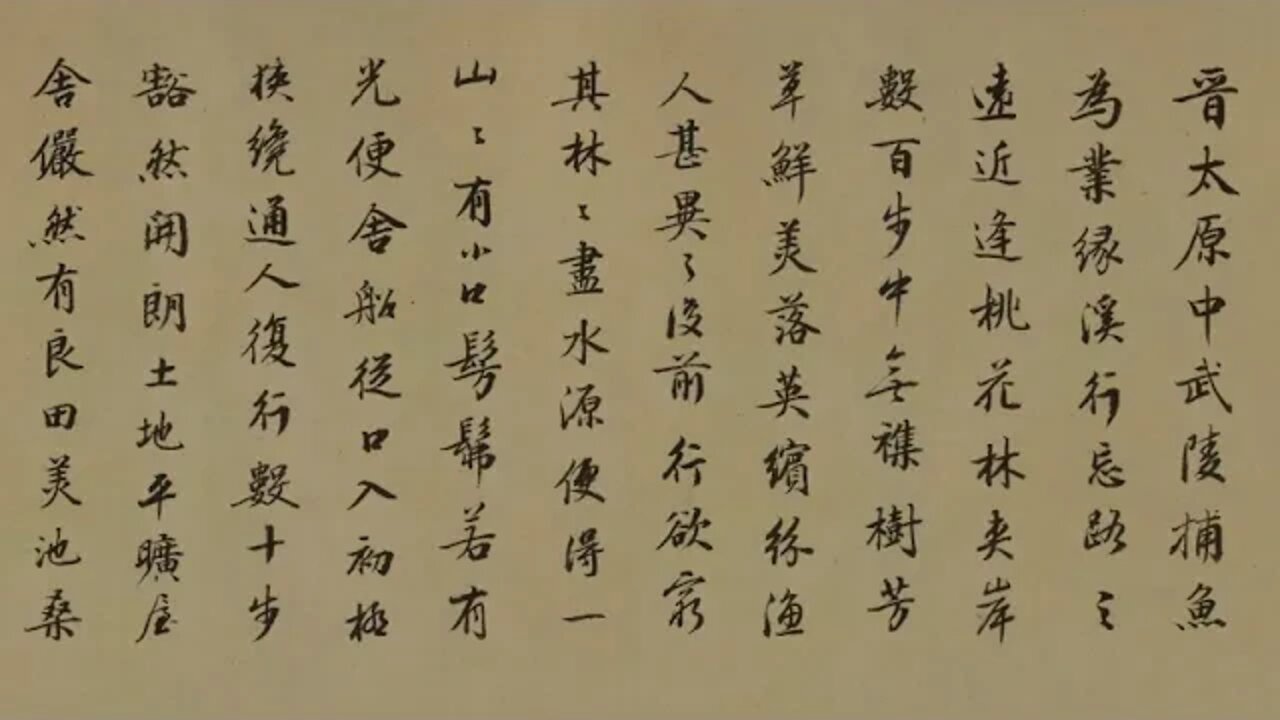 晋太原中武陵捕魚
為業緣溪行忘路之
遠近逢桃花林夾岸
數百步中無襍樹芳
草鮮美落英繽紛漁
人甚異々復前行欲窮
其林々盡水源便得一
山々有小口髣髴若有
光便舍船從口入初極
狹纔通人復行數十步
豁然開朗土地平曠屋
舍儼然有良田美池桑